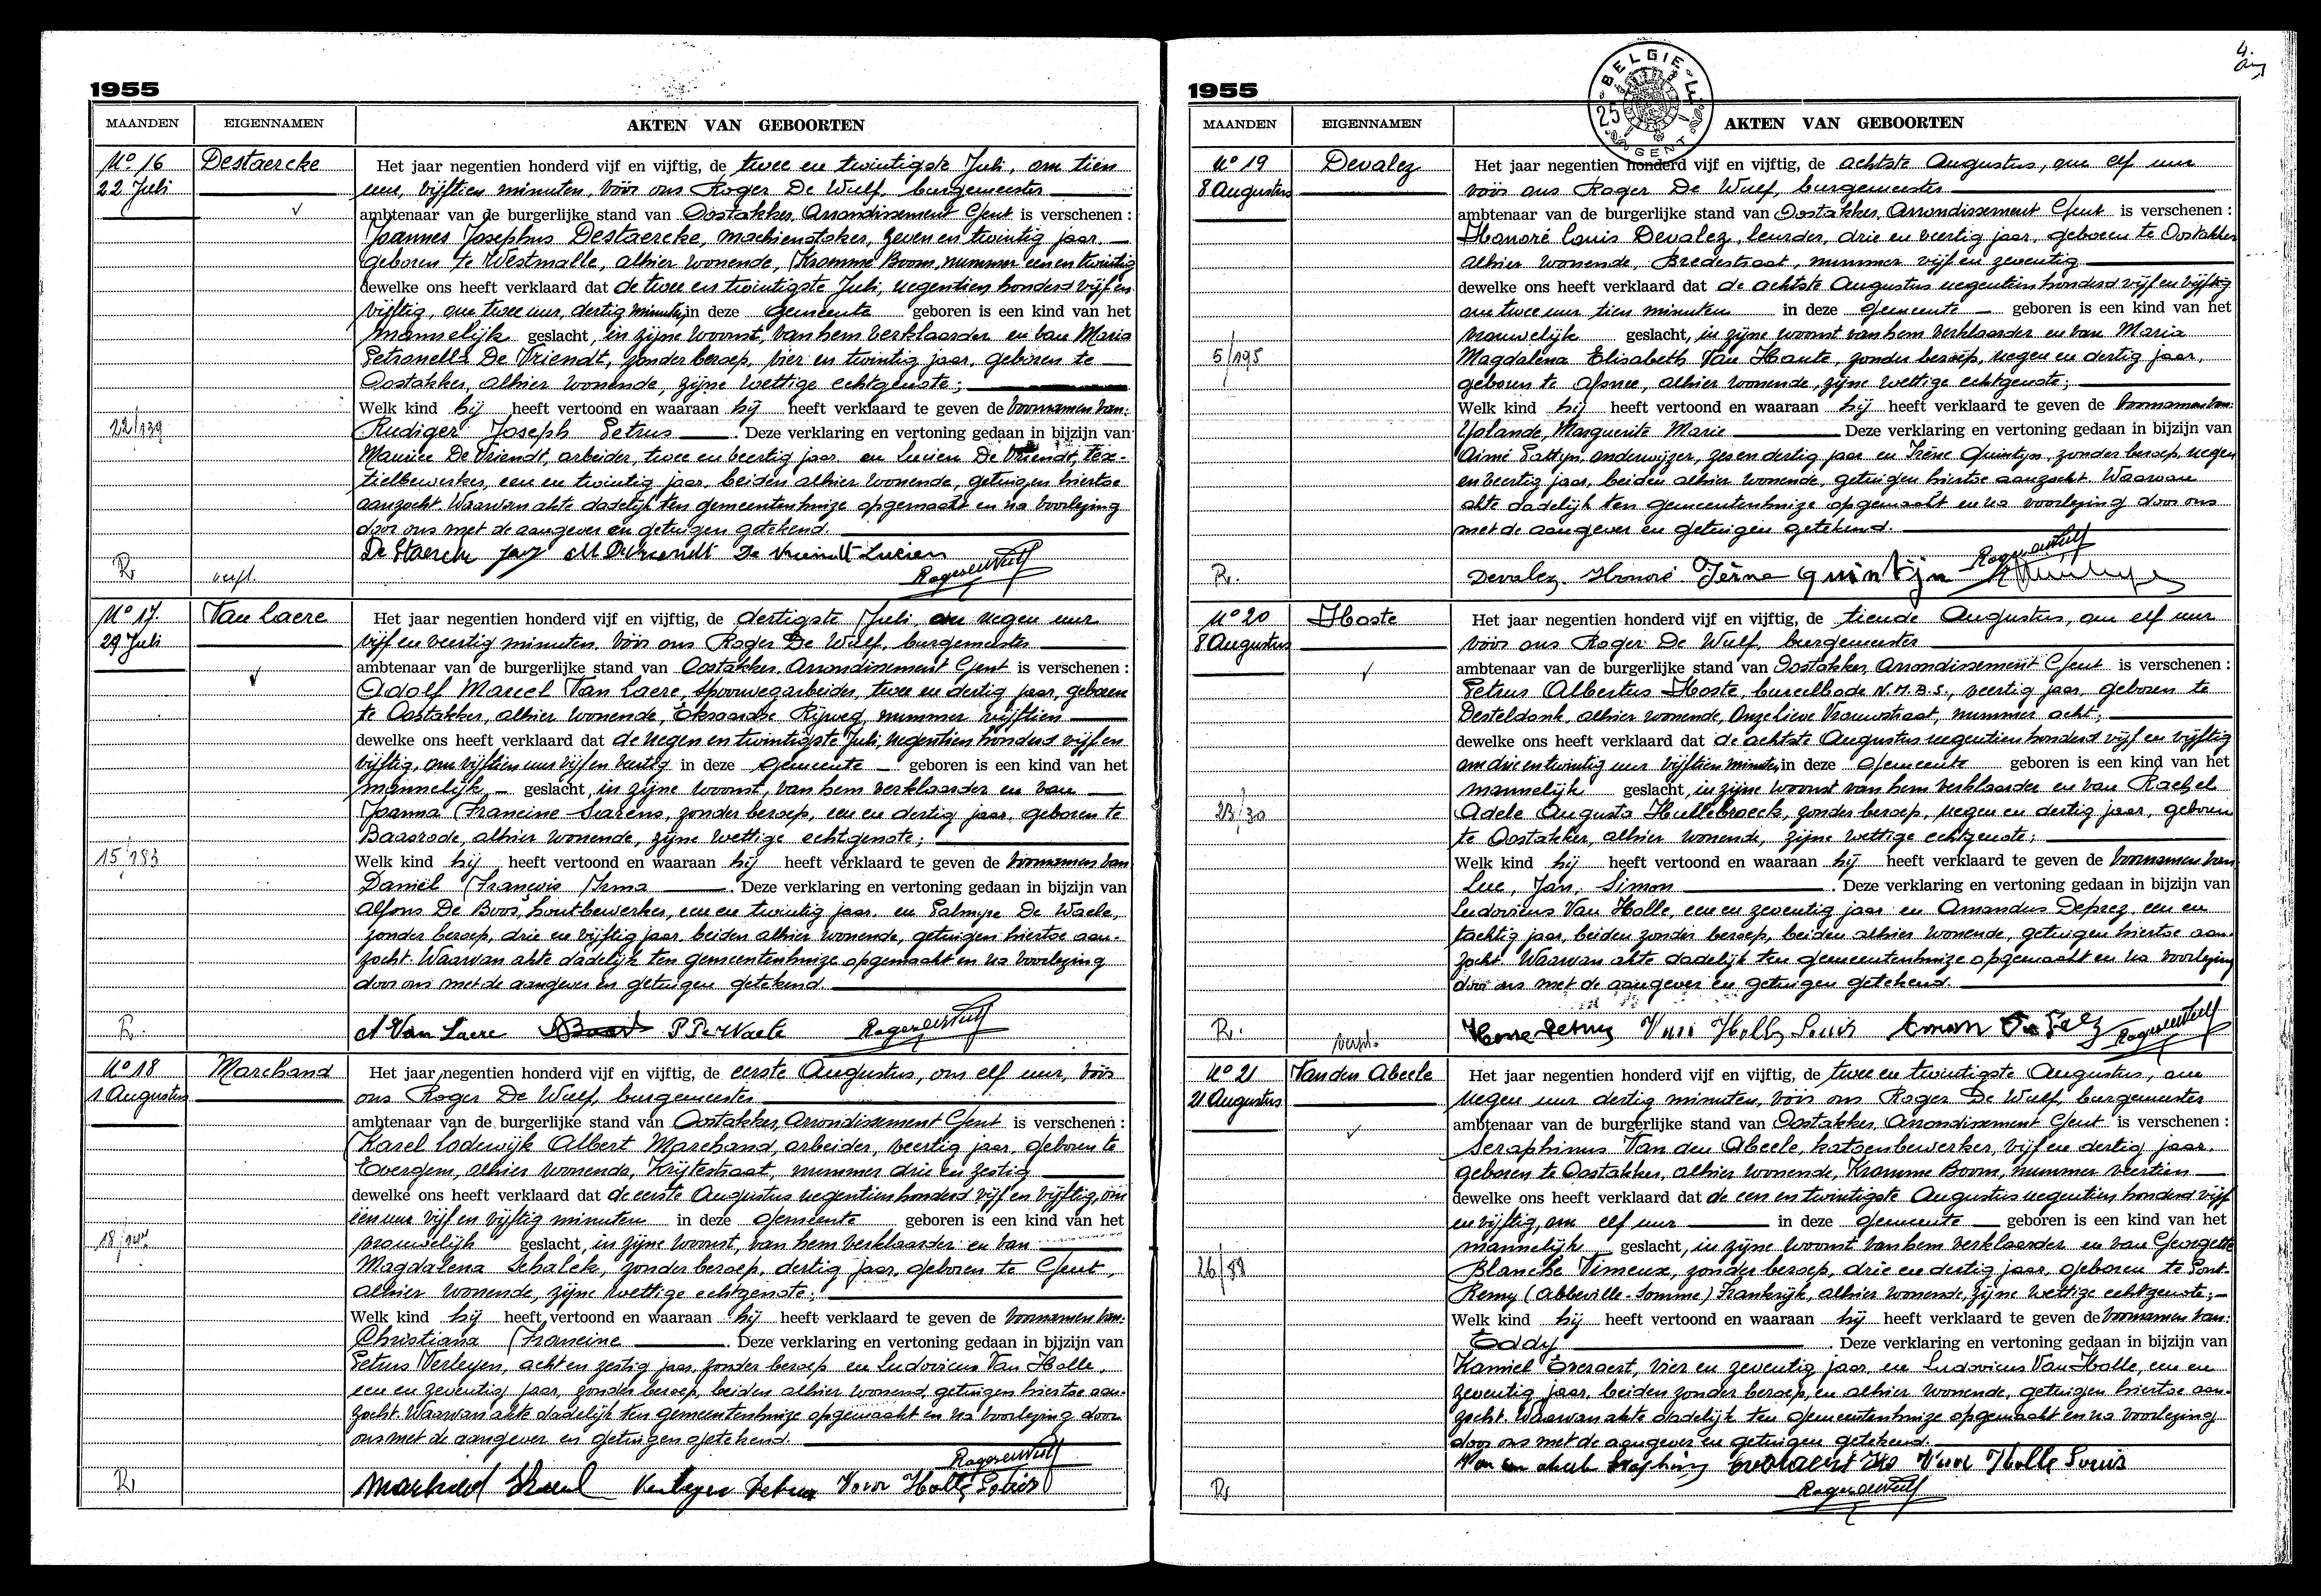 4.
1955
MAANDEN EIGENNAMEN AKTEN VAN GEBOORTEN
No 16 Destaercke Het jaar negentien honderd vijf en vijftig, de twee en twintigste Juli, om tien
22 Juli uur, vijftien minuten, vóór ons Roger De Wulf, burgemeester
ambtenaar van de burgerlijke stand van Oostakker, Arrondissement Gent is verschenen :
Joannes Josephus Destaercke, machienstoker, zeven en twintig jaar,
geboren te Westmalle, alhier wonende, Kromme Boom, nummer een en twintig
dewelke ons heeft verklaard dat de twee en twintigste Juli, negentien honderd vijf en
vijftig, om twee uur, dertig minuten, in deze gemeente geboren is een kind van het
mannelijk geslacht, in zijne woonst, van hem verklaarder en van Maria
Petronella De Vriendt, zonder beroep, vier en twintig jaar, geboren te
Oostakker, alhier wonende, zijne wettige echtgenote;
Welk kind hij heeft vertoond en waaraan hij heeft verklaard te geven de voornamen van:
22/139 Rudiger Joseph Petrus . Deze verklaring en vertoning gedaan in bijzijn van
Maurice De Vriendt, arbeider, twee en veertig jaar en Lucien De Vriendt, tex-
tielbewerker, een en twintig jaar, beiden alhier wonende, getuigen hiertoe
aanzocht. Waarvan akte dadelijk ten gemeentenhuize opgemaakt en na voorlezing
door ons met de aangever en getuigen getekend.
De Staercke M De Vriendt De Vriendt Lucien
R. verpl. Roger De Wulf
No 17. Van Laere Het jaar negentien honderd vijf en vijftig, de dertigste Juli, om negen uur
29 Juli vijf en veertig minuten, vóór ons Roger De Wulf, burgemeester
ambtenaar van de burgerlijke stand van Oostakker, Arrondissement Gent is verschenen :
Adolf Marcel Van Laere, spoorwegarbeider, twee en dertig jaar, geboren
te Oostakker, alhier wonende, Eksaardse Rijweg, nummer vijftien
dewelke ons heeft verklaard dat de negen en twintigste Juli, negentien honderd vijf en
vijftig, om vijftien uur vijf en veertig in deze gemeente geboren is een kind van het
mannelijk geslacht, in zijne woonst, van hem verklaarder en van
Joanna Francine Sarens, zonder beroep, een en dertig jaar, geboren te
Baasrode, alhier wonende, zijne wettige echtgenote;
15/183 Welk kind hij heeft vertoond en waaraan hij heeft verklaard te geven de voornamen van
Daniël François Irma . Deze verklaring en vertoning gedaan in bijzijn van
Alfons De Boos, houtbewerker, een en twintig jaar en Palmyre De Waele,
zonder beroep, drie en vijftig jaar, beiden alhier wonende, getuigen hiertoe aan-
zocht. Waarvan akte dadelijk ten gemeentenhuize opgemaakt en na voorlezing
door ons met de aangever en getuigen getekend.
R. A Van Laere P De Waele Roger De Wulf
No 18 Marchand Het jaar negentien honderd vijf en vijftig, de eerste Augustus, om elf uur, vóór
1 Augustus ons Roger De Wulf, burgemeester
ambtenaar van de burgerlijke stand van Oostakker, Arrondissement Gent is verschenen :
Karel Lodewijk Albert Marchand, arbeider, veertig jaar, geboren te
Evergem, alhier wonende, Krijtestraat, nummer drie en zestig
dewelke ons heeft verklaard dat de eerste Augustus negentien honderd vijf en vijftig, om
één uur vijf en vijftig minuten in deze gemeente geboren is een kind van het
vrouwelijk geslacht, in zijne woonst, van hem verklaarder en van
Magdalena Schalck, zonder beroep, dertig jaar, geboren te Gent,
alhier wonende, zijne wettige echtgenote;
Welk kind hij heeft vertoond en waaraan hij heeft verklaard te geven de voornamen van:
Christiana Francine . Deze verklaring en vertoning gedaan in bijzijn van
Petrus Verleyen, acht en zestig jaar, zonder beroep en Ludovicus Van Holle,
een en zeventig jaar, zonder beroep, beiden alhier wonend, getuigen hiertoe aan-
zocht. Waarvan akte dadelijk ten gemeentenhuize opgemaakt en na voorlezing door
ons met de aangever en getuigen getekend.
Roger De Wulf
R. Marchand Karel Verleyen Petrus Van Holle Louis
1955
BELGIE GENT 25
MAANDEN EIGENNAMEN AKTEN VAN GEBOORTEN
No 19 Devalez Het jaar negentien honderd vijf en vijftig, de achtste Augustus, om elf uur
8 Augustus vóór ons Roger De Wulf, burgemeester
ambtenaar van de burgerlijke stand van Oostakker, Arrondissement Gent is verschenen :
Honoré Louis Devalez, leurder, drie en veertig jaar, geboren te Oostakker
alhier wonende, Bredestraat, nummer vijf en zeventig
dewelke ons heeft verklaard dat de achtste Augustus negentien honderd vijf en vijftig
om twee uur tien minuten in deze gemeente geboren is een kind van het
vrouwelijk geslacht, in zijne woonst van hem verklaarder en van Maria
5/195 Magdalena Elisabeth Van Haute, zonder beroep, negen en dertig jaar,
geboren te Afsnee, alhier wonende, zijne wettige echtgenote;
Welk kind hij heeft vertoond en waaraan hij heeft verklaard te geven de voornamen van:
Yolande, Marguerite Marie Deze verklaring en vertoning gedaan in bijzijn van
Aimé Pattyn, onderwijzer, zes en dertig jaar en Irène Quintijn, zonder beroep, negen
en veertig jaar, beiden alhier wonende, getuigen hiertoe aanzocht. Waarvan
akte dadelijk ten gemeentenhuize opgemaakt en na voorlezing door ons
met de aangever en getuigen getekend.
Roger De Wulf
R. Devalez Honoré Irène Quintijn
No 20 Hoste Het jaar negentien honderd vijf en vijftig, de tiende Augustus, om elf uur
8 Augustus vóór ons Roger De Wulf, burgemeester
ambtenaar van de burgerlijke stand van Oostakker, Arrondissement Gent is verschenen :
Petrus Albertus Hoste, bureelbode N.M.B.S., veertig jaar, geboren te
Desteldonk, alhier wonende, Onze Lieve Vrouwstraat, nummer acht;
dewelke ons heeft verklaard dat de achtste Augustus negentien honderd vijf en vijftig
om drie en twintig uur vijftien minuten, in deze gemeente geboren is een kind van het
mannelijk geslacht, in zijne woonst van hem verklaarder en van Rachel
23/30 Adele Augusta Hullebroeck, zonder beroep, negen en dertig jaar, geboren
te Oostakker, alhier wonende, zijne wettige echtgenote;
Welk kind hij heeft vertoond en waaraan hij heeft verklaard te geven de voornamen van
Luc, Jan, Simon . Deze verklaring en vertoning gedaan in bijzijn van
Ludovicus Van Holle, een en zeventig jaar en Amandus Deprez, een en
tachtig jaar, beiden zonder beroep, beiden alhier wonende, getuigen hiertoe aan-
zocht. Waarvan akte dadelijk ten gemeentenhuize opgemaakt en na voorlezing
door ons met de aangever en getuigen getekend.
R. verpl. Petrus Van Holle Louis Roger De Wulf
No 21 Van den Abeele Het jaar negentien honderd vijf en vijftig, de twee en twintigste Augustus, om
21 Augustus negen uur dertig minuten, vóór ons Roger De Wulf, burgemeester
ambtenaar van de burgerlijke stand van Oostakker, Arrondissement Gent is verschenen :
Seraphinus Van den Abeele, katoenbewerker, vijf en dertig jaar,
geboren te Oostakker, alhier wonende, Kromme Boom, nummer veertien
dewelke ons heeft verklaard dat de een en twintigste Augustus negentien honderd vijf
en vijftig, om elf uur in deze gemeente geboren is een kind van het
mannelijk geslacht, in zijne woonst van hem verklaarder en van Georgette
26/88 Blanche Vimeux, zonder beroep, drie en dertig jaar, geboren te Pont-
Remy (Abbeville-Somme) Frankrijk, alhier wonende, zijne wettige echtgenote;
Welk kind hij heeft vertoond en waaraan hij heeft verklaard te geven de voornamen van:
Eddy . Deze verklaring en vertoning gedaan in bijzijn van
Kamiel Everaert, vier en zeventig jaar, en Ludovicus Van Holle, een en
zeventig jaar, beiden zonder beroep, en alhier wonende, getuigen hiertoe aan-
zocht. Waarvan akte dadelijk ten gemeentenhuize opgemaakt en na voorlezing
door ons met de aangever en getuigen getekend.
Van Holle Louis
R. Roger De Wulf